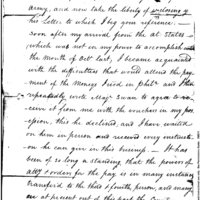 army, and now take the liberty of enclosing of
his Letter to which I beg your reference. —
soon after my arrival from the at States —
which was not in my power to accomplish
the Month of Octr last, I became acquainted
with the difficulties that would attend the pay-
ment of the Moneys Fixed in phila and I have
repeatedly wrote Majr Swan to agree to re
ceive it from me with the vouchers in my pos
session, this he declines, and I have waited
on him in person and received every instructi
on he can give in this business. — It has
been of so long a standing that the powers of
atty & orders for the pay is in many instances
transfer'd to the third & fourth person, and many
at present out of this part the